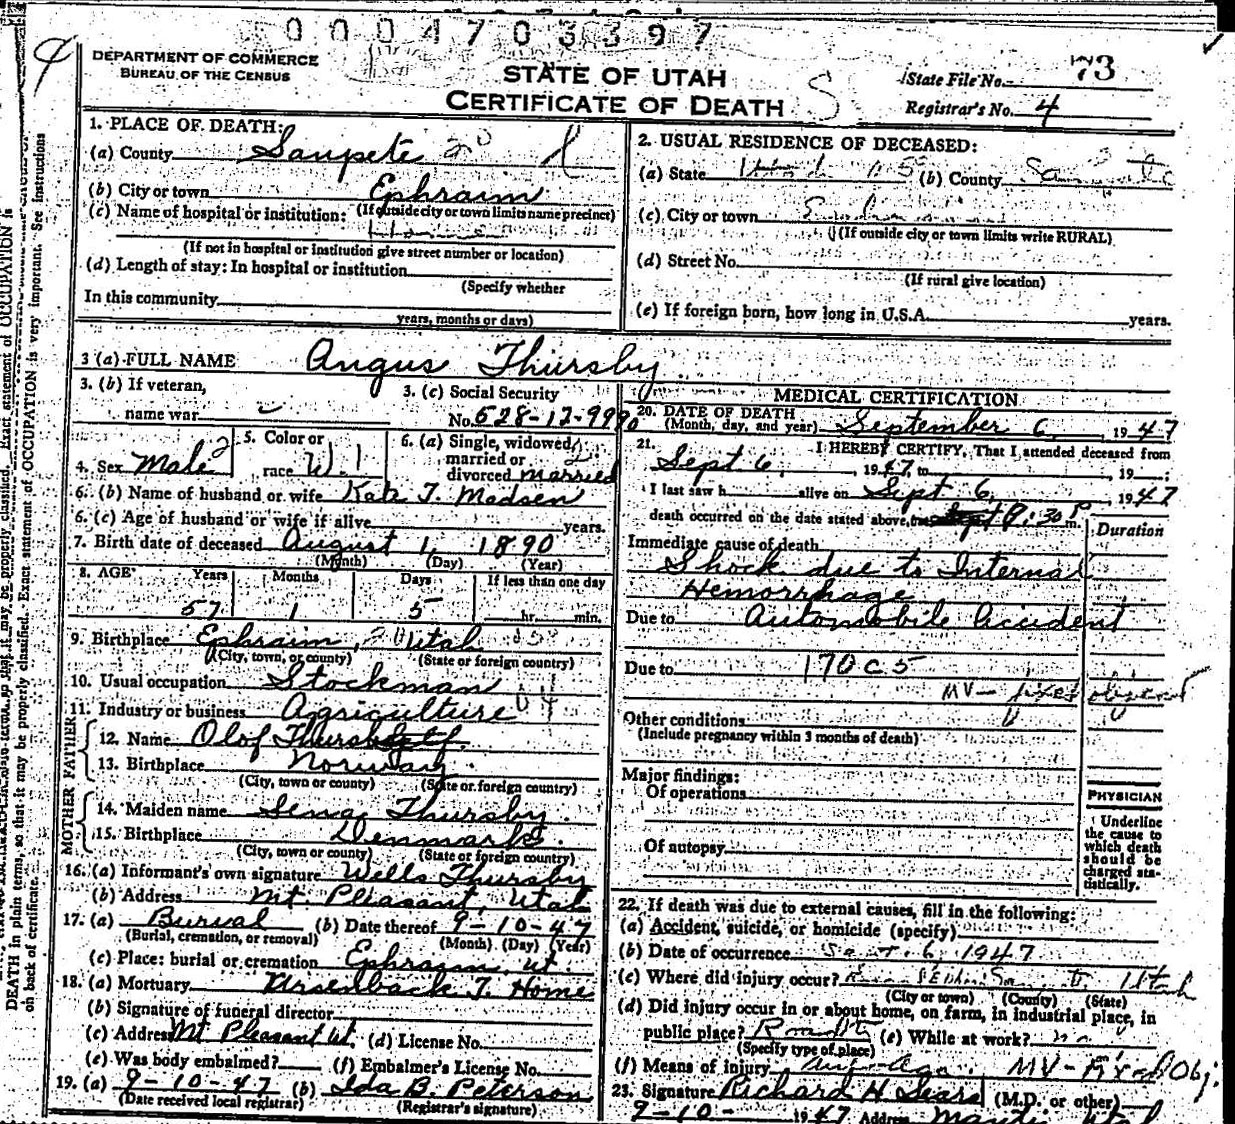 0004703397
DEPARTMENT OF COMMERCE
BUREAU OF THE CENSUS
STATE OF UTAH
CERTIFICATE OF DEATH
State File No. 73
Registrar's No. 4
1. PLACE OF DEATH:
(a) County Sanpete
(b) City or town Ephraim
(If outside city or town limits name precinct)
(c) Name of hospital or institution:
Home
(If not in hospital or institution give street number or location)
(d) Length of stay: In hospital or institution
(Specify whether
In this community
years, months or days)
2. USUAL RESIDENCE OF DECEASED:
(a) State Utah (b) County Sanpete
(c) City or town Ephraim
(If outside city or town limits write RURAL)
(d) Street No.
(If rural give location)
(e) If foreign born, how long in U.S.A. years.
3 (a) FULL NAME Angus Thursby
3. (b) If veteran,
name war
3. (c) Social Security
No. 528-12-9990
4. Sex Male
5. Color or
race W.
6. (a) Single, widowed,
married or
divorced married
6. (b) Name of husband or wife Kate T. Madsen
6. (c) Age of husband or wife if alive years.
7. Birth date of deceased August 1, 1890
(Month) (Day) (Year)
8. AGE Years Months Days If less than one day
57 1 5 hr. min.
9. Birthplace Ephraim, Utah
(City, town, or county) (State or foreign country)
10. Usual occupation Stockman
11. Industry or business Agriculture
FATHER
12. Name Olof
13. Birthplace Norway
(City, town or county) (State or foreign country)
MOTHER
14. Maiden name Sena Thursby
15. Birthplace Denmark
(City, town or county) (State or foreign country)
16. (a) Informant's own signature Wells Thursby
(b) Address Mt Pleasant, Utah
17. (a) Burial (b) Date thereof 9-10-47
(Burial, cremation, or removal) (Month) (Day) (Year)
(c) Place: burial or cremation Ephraim, ut.
18. (a) Mortuary Ursenbach F. Home
(b) Signature of funeral director
(c) Address Mt Pleasant Ut. (d) License No.
(e) Was body embalmed? (f) Embalmer's License No.
19. (a) 9-10-47 (b) Ida B. Peterson
(Date received local registrar) (Registrar's signature)
MEDICAL CERTIFICATION
20. DATE OF DEATH
(Month, day, and year) September 6, 1947
21. I HEREBY CERTIFY, That I attended deceased from
Sept 6, 1947 to 19
I last saw h alive on Sept 6, 1947
death occurred on the date stated above, 30 P m.
Duration
Immediate cause of death
Shock due to Internal
Hemorrhage
Due to Automobile Accident
Due to 170 c 5
MV - fixed object
Other conditions
(Include pregnancy within 3 months of death)
Major findings:
Of operations
Of autopsy
PHYSICIAN
Underline
the cause to
which death
should be
charged sta-
tistically.
22. If death was due to external causes, fill in the following:
(a) Accident, suicide, or homicide (specify)
(b) Date of occurrence Sept. 6, 1947
(c) Where did injury occur? Utah
(City or town) (County) (State)
(d) Did injury occur in or about home, on farm, in industrial place, in
public place? (e) While at work? no
(Specify type of place)
(f) Means of injury MV - Fixed Obj.
23. Signature Richard H Sears (M.D. or other)
9-10- 1947 Address Manti Utah
DEATH in plain terms, so that it may be properly classified. Exact statement of OCCUPATION is very important. See instructions
on back of certificate.